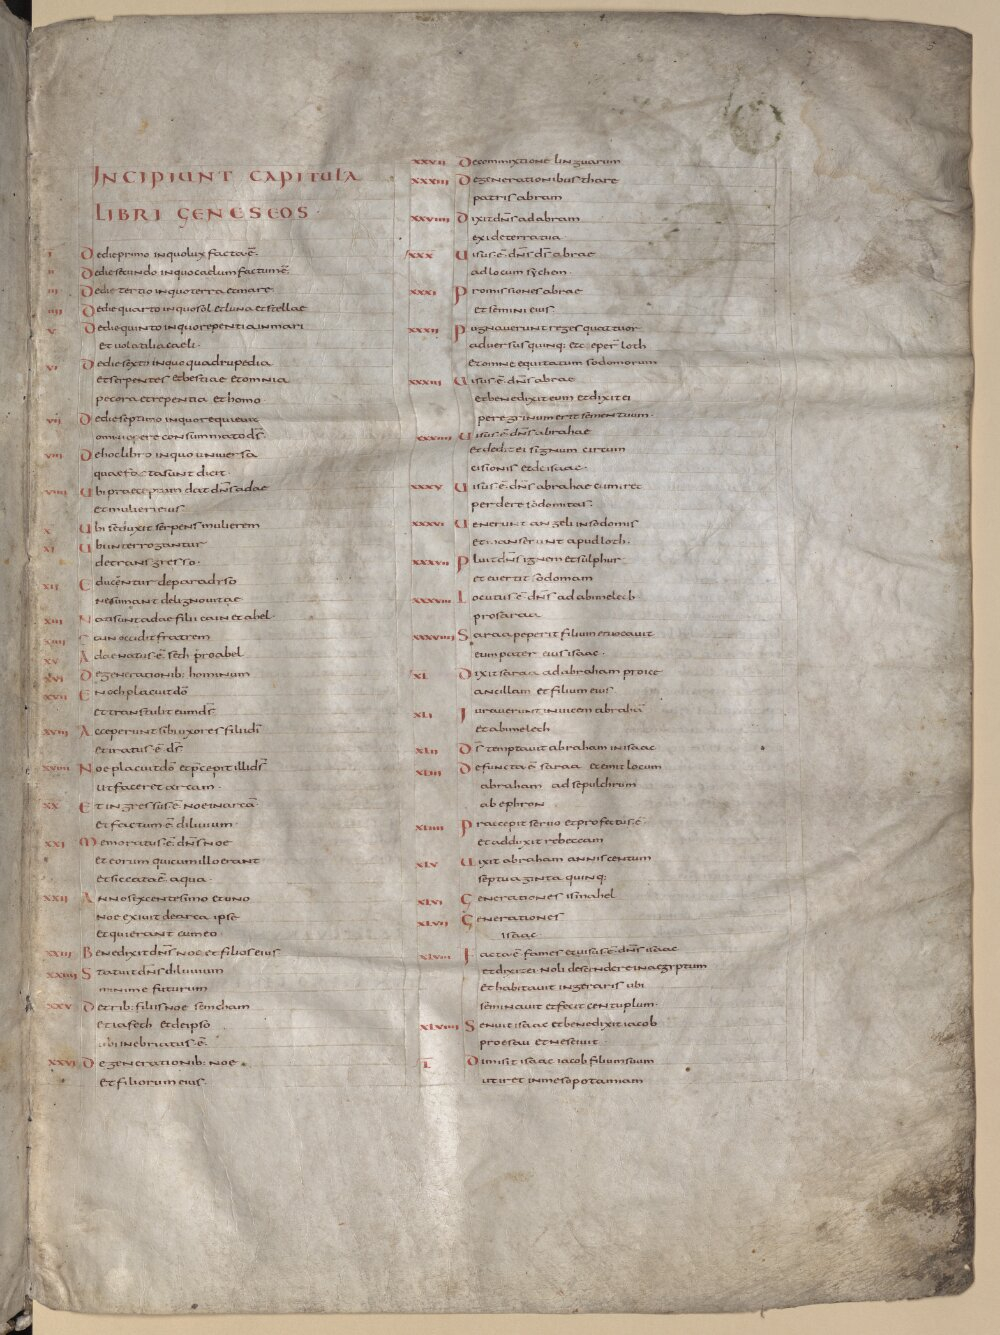 INCIPIUNT CAPITULA
LIBRI GENESEOS
I De die primo in quo lux facta ē
II De die secundo in quo caelum factum ē
III De die tertio in quo terra et mare
IIII De die quarto in quo sol et luna et stellae
V De die quinto in quo repentia in mari
et volatilia caeli
VI De die sexto in quo quadrupedia
et serpentes et bestiae et omnia
pecora et repentia et homo
VII De die septimo in quo requievit
omni opere consummato d̄s
VIII De hoc libro in quo universa
quae facta sunt dicit
VIIII Ubi praeceptum dat dn̄s adae
et mulieri eius
X Ubi seduxit serpens mulierem
XI Ubi interrogantur
de transgresso
XII Educentur de paradiso
ne sumant de ligno vitae
XIII Nati sunt adae filii cain et abel
XIIII Cain occidit fratrem
XV Adae natus ē seth pro abel
XVI De generationib: hominum
XVII Enoch placuit dō
et transtulit eum d̄s
XVIII Acceperunt sibi uxores filii dī
et iratus ē d̄s
XVIIII Noe placuit dō et p̄cepit illi d̄s
ut faceret arcam
XX Et ingressus ē noe in arcā
et factum ē diluvium
XXI Memoratus ē dn̄s noe
et eorum qui cum illo erant
et siccata ē aqua
XXII Anno sexcentesimo et uno
noe exiuit de arca ipse
et qui erant cum eo
XXIII Benedixit dn̄s noe et filios eius
XXIIII Statuit dn̄s diluvium
minime futurum
XXV De trib: filiis noe sem cham
et iafeth et de ipso
ubi inebriatus ē
XXVI De generationib: noe
et filiorum eius
XXVII De commixtione linguarum
XXXIII De generationibus thare
patris abram
XXVIIII Dixit dn̄s ad abram
exi de terra tua
XXX Uisus ē dn̄s d̄s abrae
ad locum sychem
XXXI Promissiones abrae
et semini eius
XXXII Pugnaverunt reges quattuor
adversus quinq: et ceper loth
et omne equitatum sodomorum
XXXIII Uisus ē dn̄s abrae
et benedixit eum et dixit ei
peregrinum erit semen tuum
XXXIIII Uisus ē dn̄s abrahae
et dedit ei signum circum
cisionis et de isaac
XXXV Uisus ē dn̄s abrahae cum iret
perdere sodomitas
XXXVI Uenerunt angeli in sodomis
et manserunt apud loth
XXXVII Pluit dn̄s ignem et sulphur
et evertit sodomam
XXXVIII Locutus ē dn̄s ad abimelech
pro sarra
XXXVIIII Sarra peperit filium et vocavit
eum pater eius isaac
XL Dixit sarra ad abraham proice
ancillam et filium eius
XLI Iuraverunt invicem abrahā
et abimelech
XLII D̄s temptavit abraham in isaac
XLIII Defuncta ē sarra et emit locum
abraham ad sepulchrum
ab ephron
XLIIII Praecepit servo et profectus ē
et adduxit rebeccam
XLV Uixit abraham annis centum
septuaginta quinq:
XLVI Generationes ismahel
XLVII Generationes
isaac
XLVIII Facta ē fames et visus ē dn̄s isaac
et dixit ei noli descendere in aegyptum
et habitavit in geraris ubi
seminavit et fecit centuplum
XLVIIII Senuit isaac et benedixit iacob
pro esau et nescivit
L Dimisit isaac iacob filium suum
ut iret in mesopotamiam